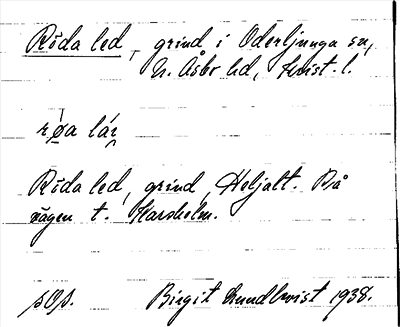 Röda led, grind i Oderljunga sn,
N. Åsbo hd, Krist. l.
røa lár
Röda led, grind, Heljalt. På
vägen t. Karsholm.
sOs. Birgit Lundkvist 1938.